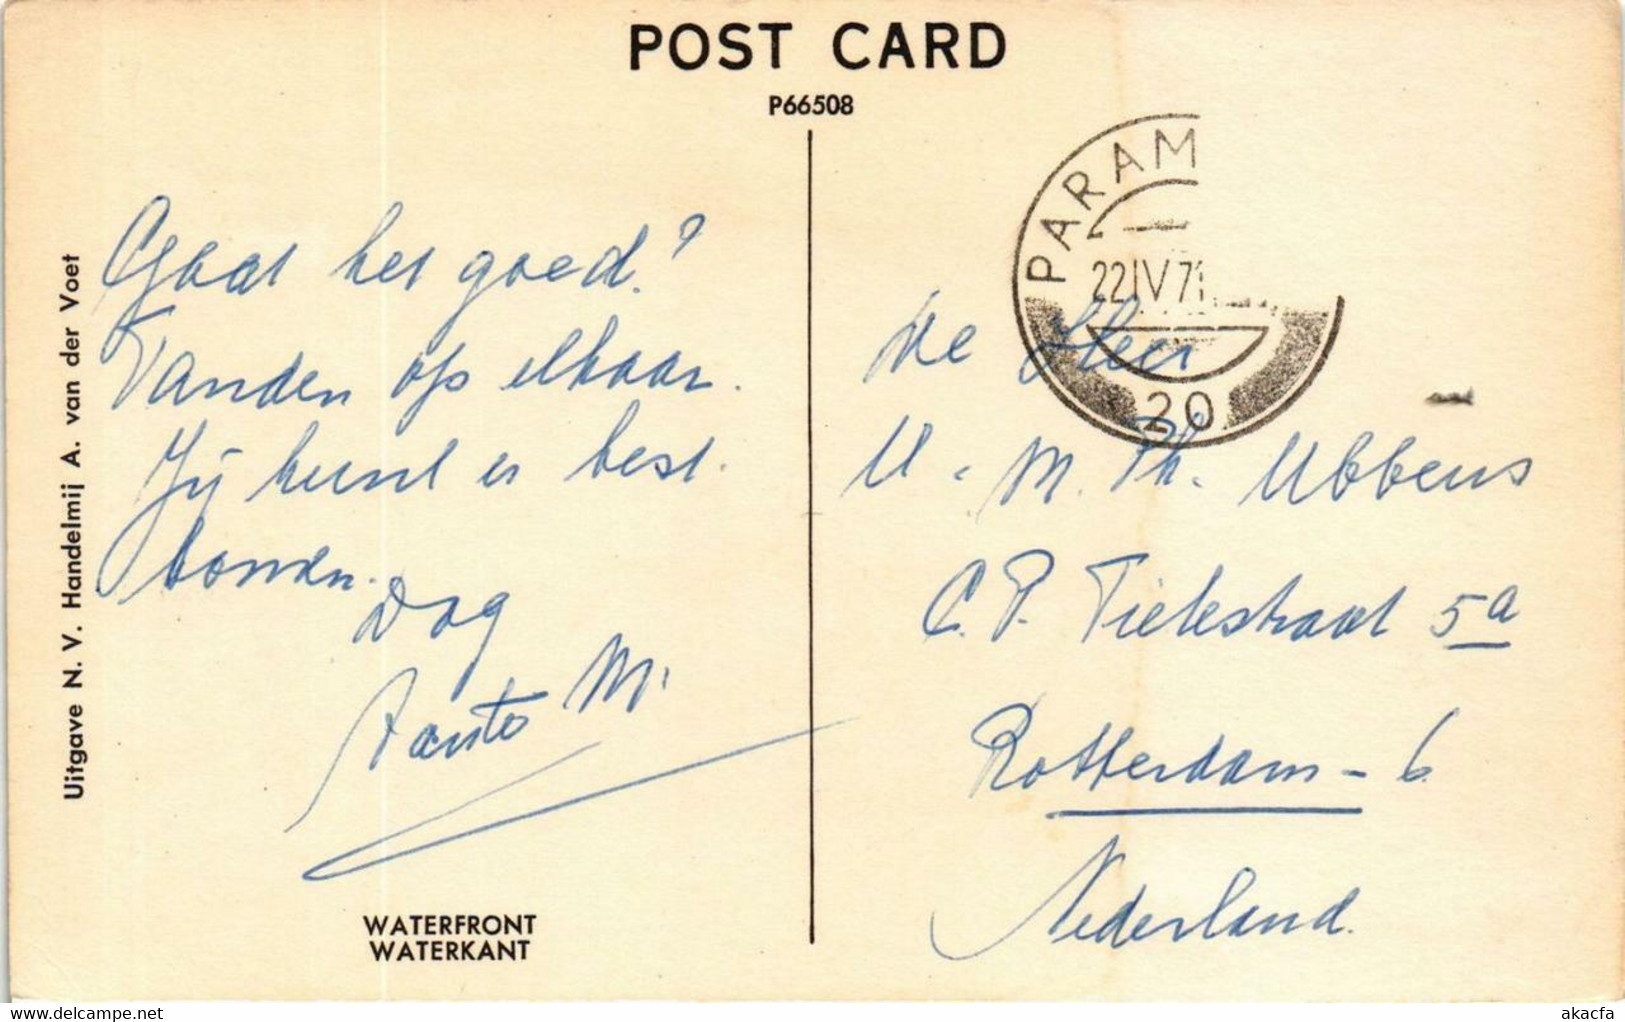 POST CARD
P66508
Uitgave N. V. Handelmij A. van der Voet
Gaat het goed?
Tanden op elkaar.
Jij kunt er best.
komen.
Dag
Tante M.
WATERFRONT
WATERKANT
PARAM
22 IV 71
20
De Heer
M. Th. Ubbens
C. P. Tielestraat 5a
Rotterdam - 6
Nederland.
delcampe.net
akacfa